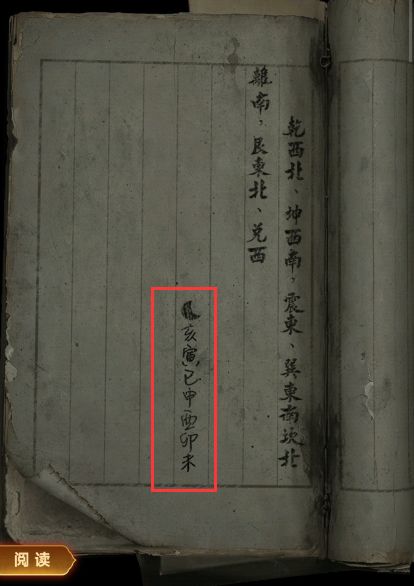 乾西北、坤西南,震東、巽東南坎北
離南,艮東北、兑西
亥寅巳申酉卯未
阅读